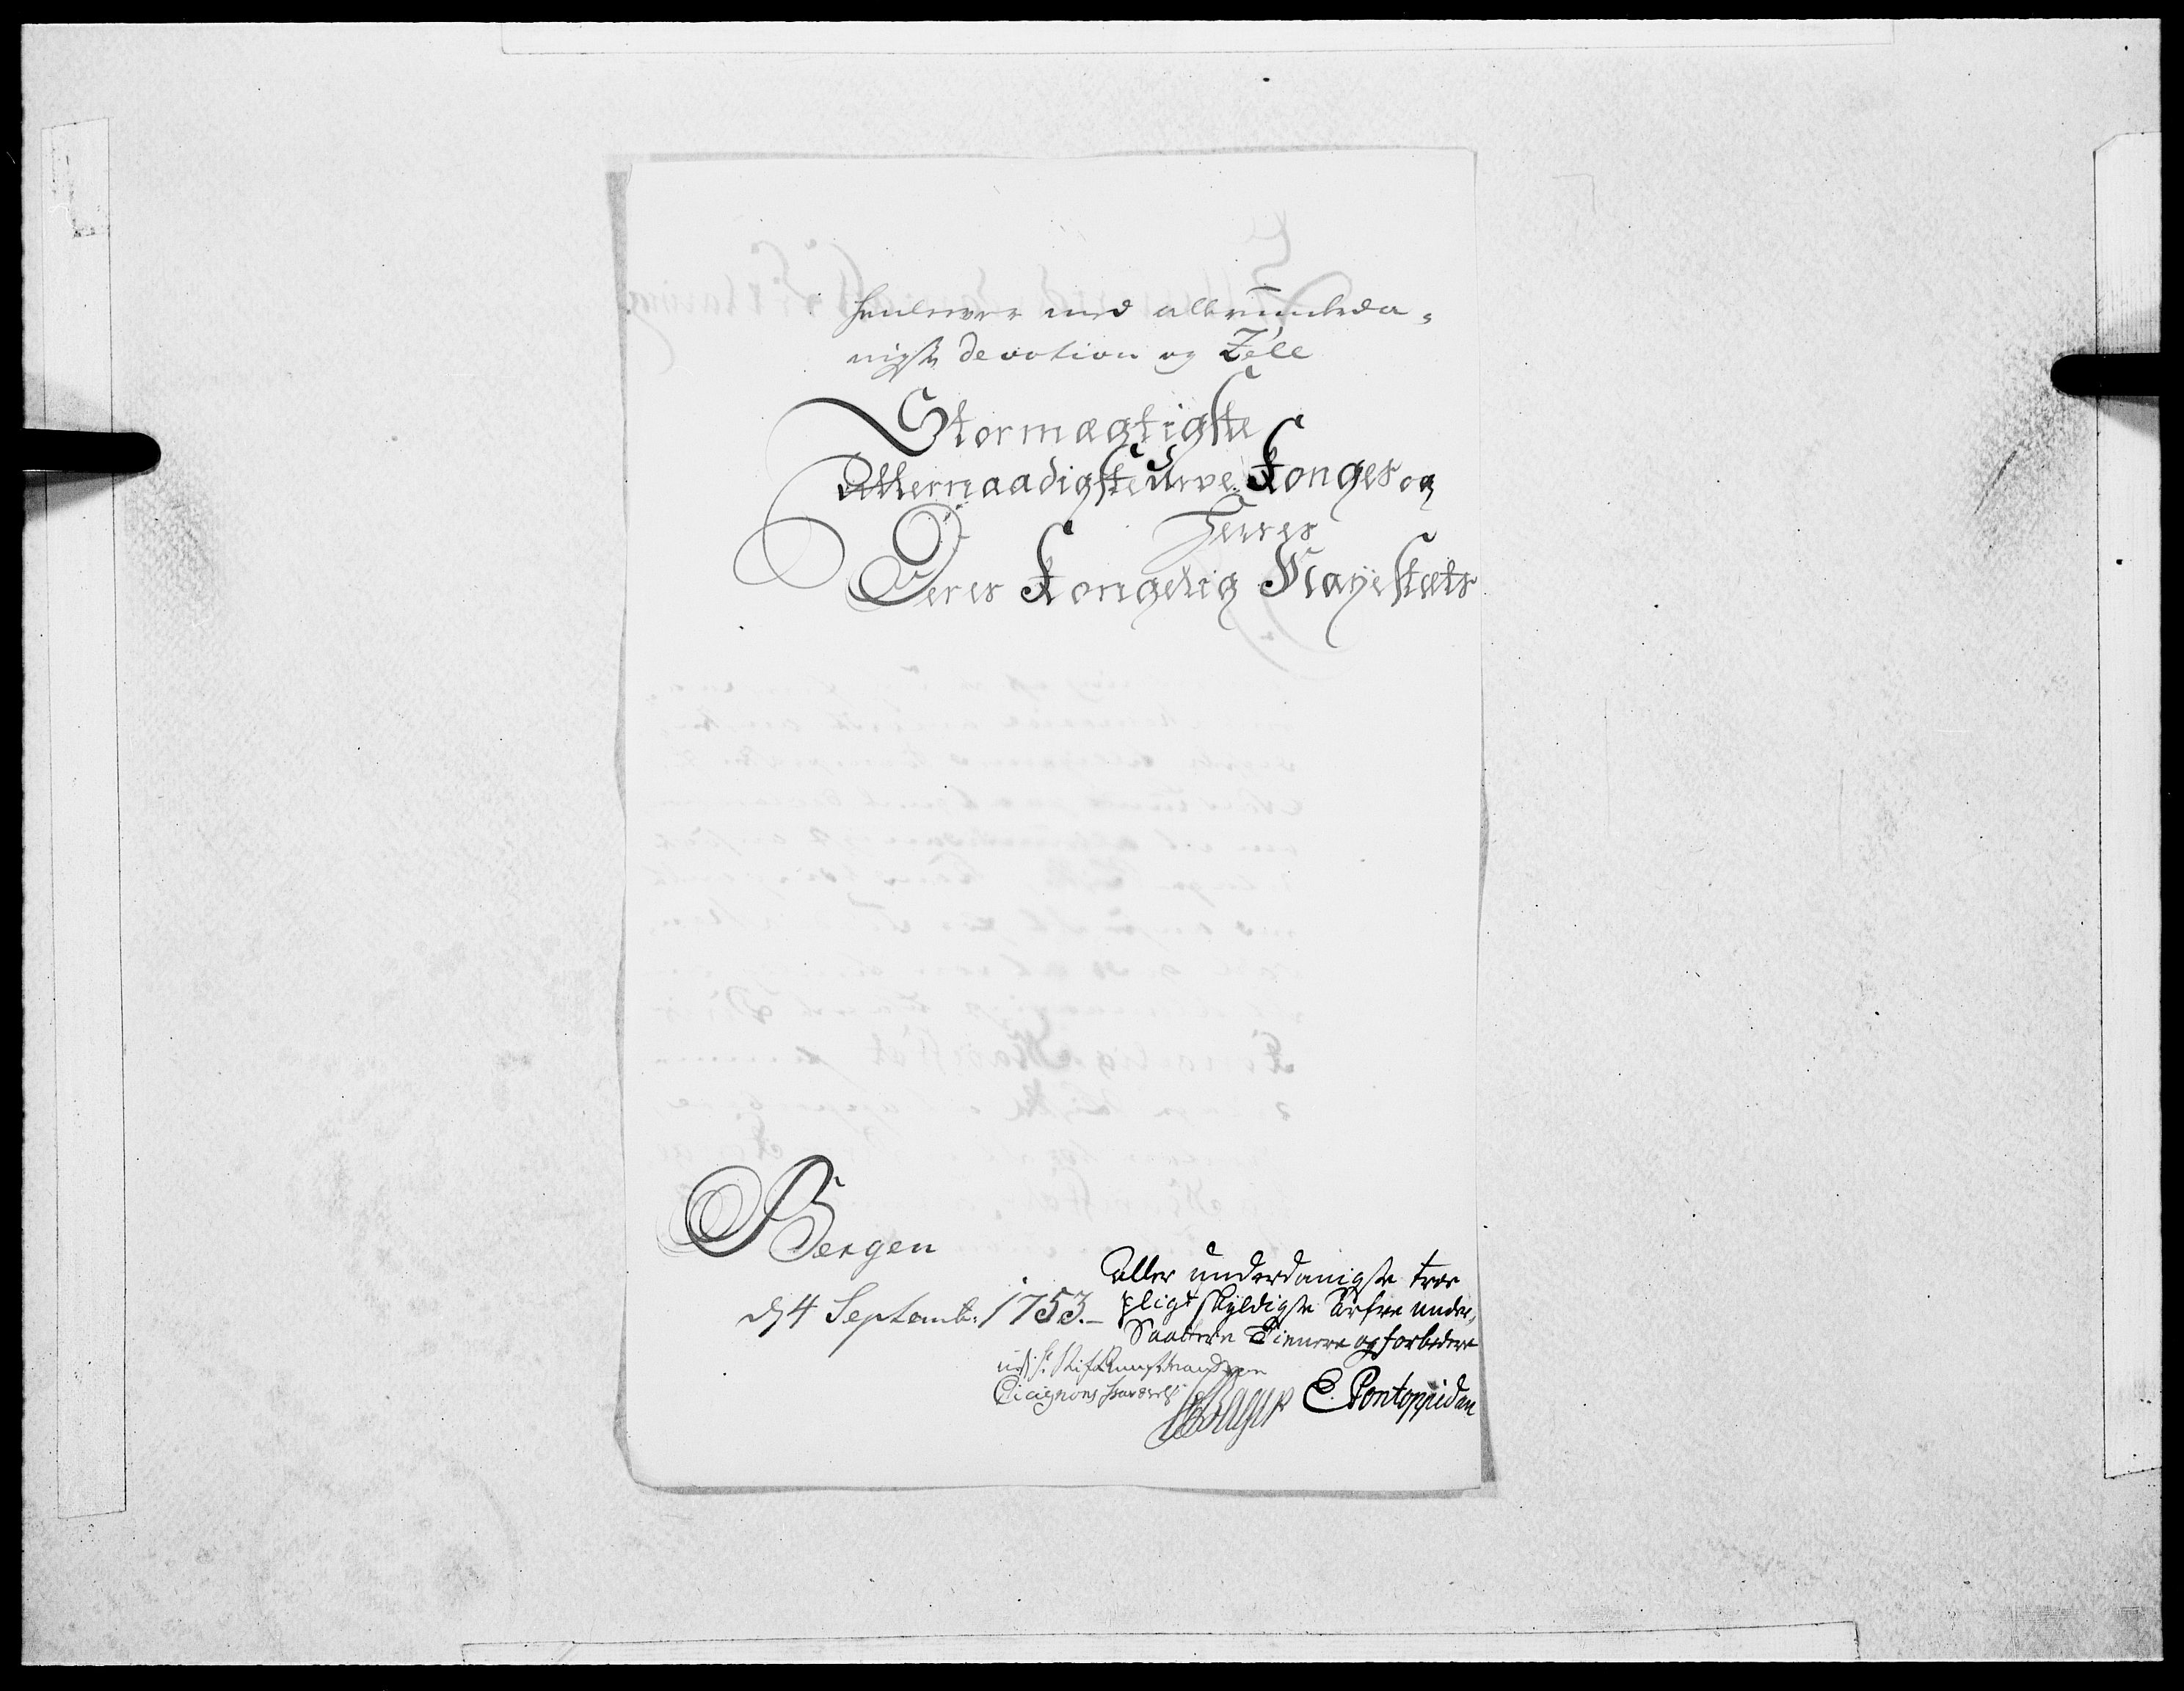 henlever med allerunderda-
nigste devotion og Zele
Stormægtigste
Allernaadigste Arve Konges og
Herres
Deres Kongelig Mayestæts
Bergen
d 4 Septemb: 1753.
Aller underdanigste troe
pligt skyldigste Arfve under,
Saatter Tienere og forbedere
udi Hr. Stiftbefalingsmand von
Cicignons fraværelse
E. Pontoppidan